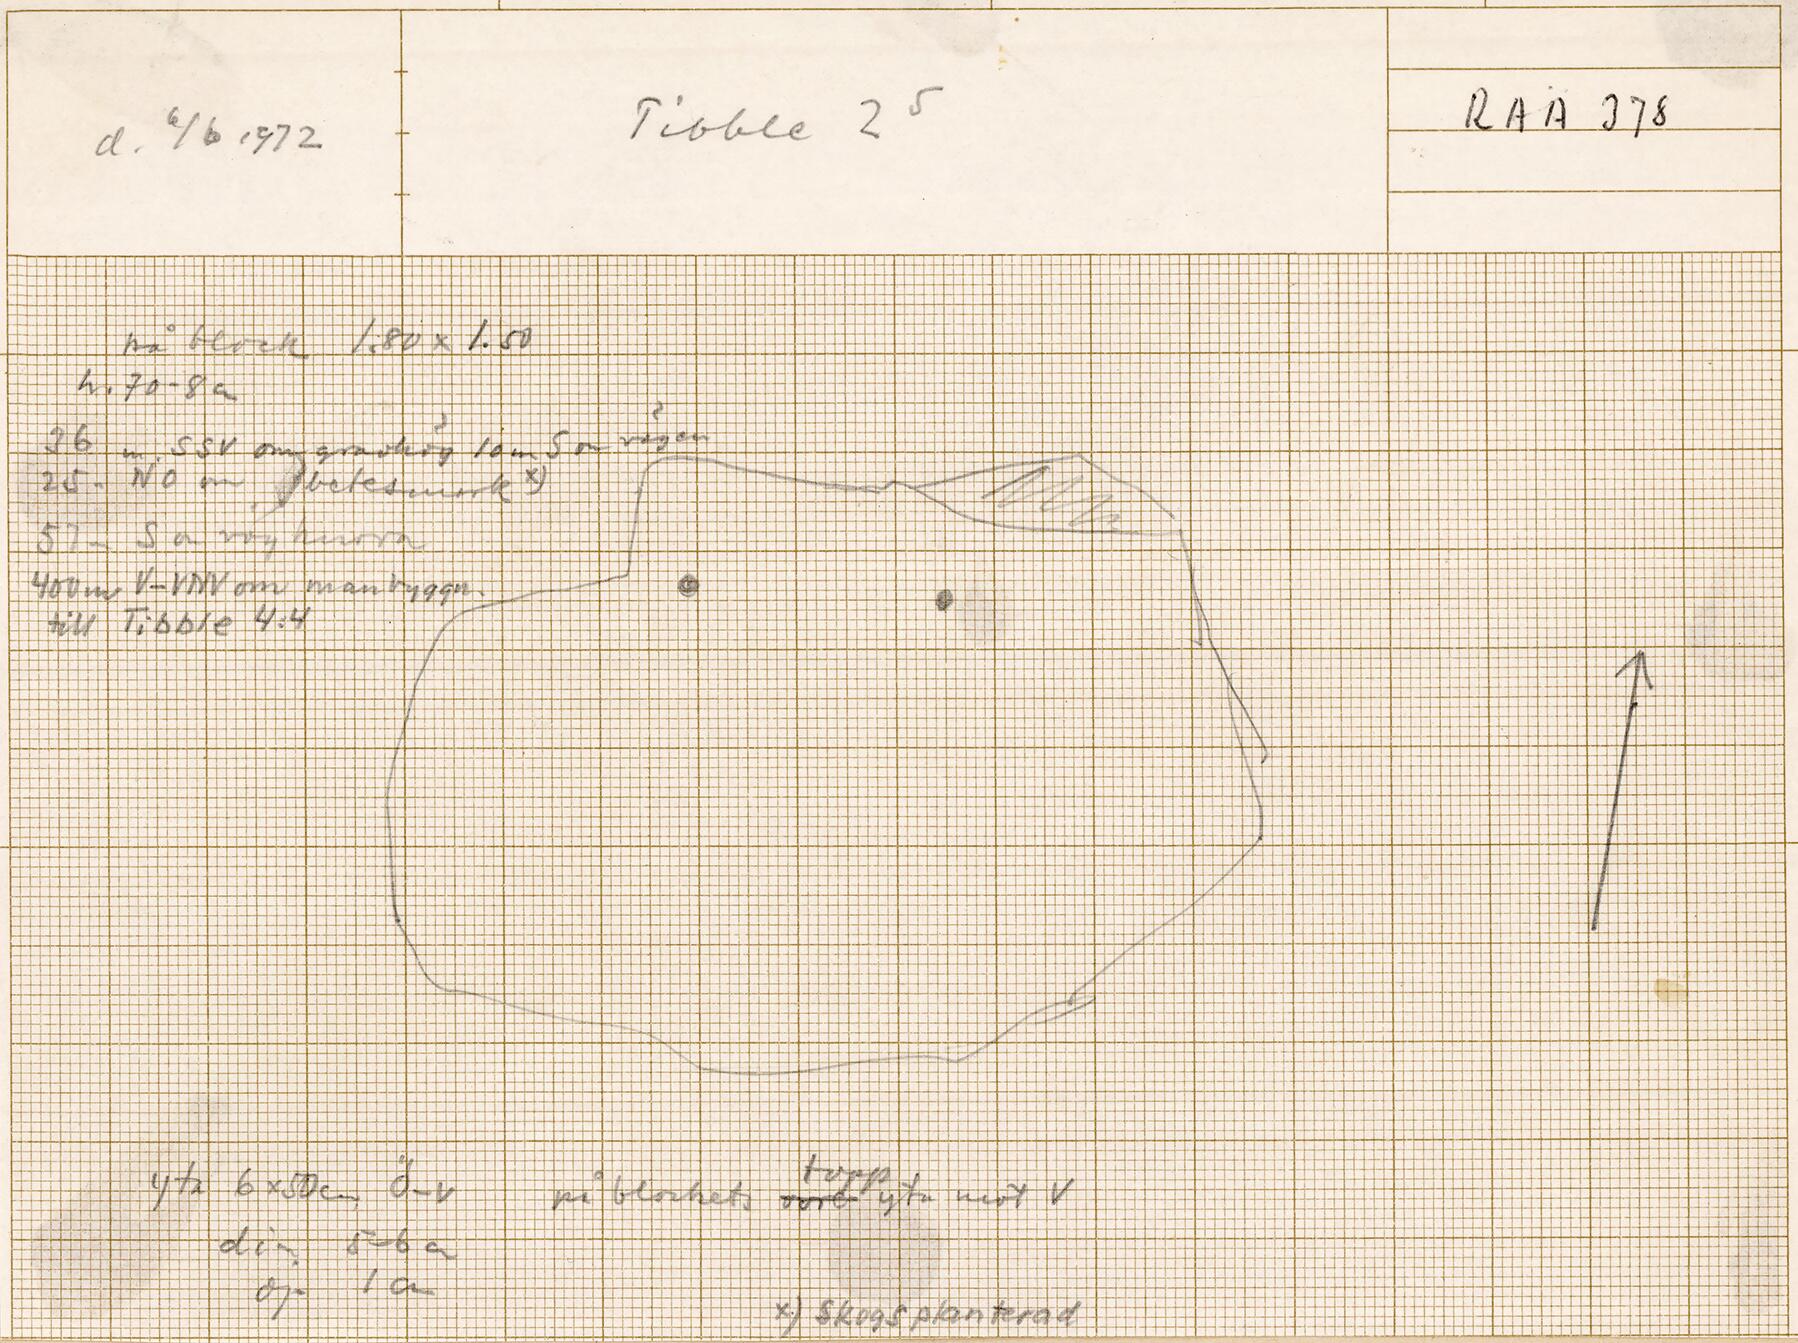 d. 6/6 1972
Tibble 2⁵
RAÄ 378
på block 1.80 x 1.50
h. 70-8
36 m. SSV om gravhög 10 m S om vägen
25 - NO om betesmark x)
57 - S om väg
400 m V-VNV om manbyggn.
till Tibble 4:4
yta 6x50 cm Ö-V
på blockets topp yta mot V
5-6
1 cm
x) Skogsplanterad